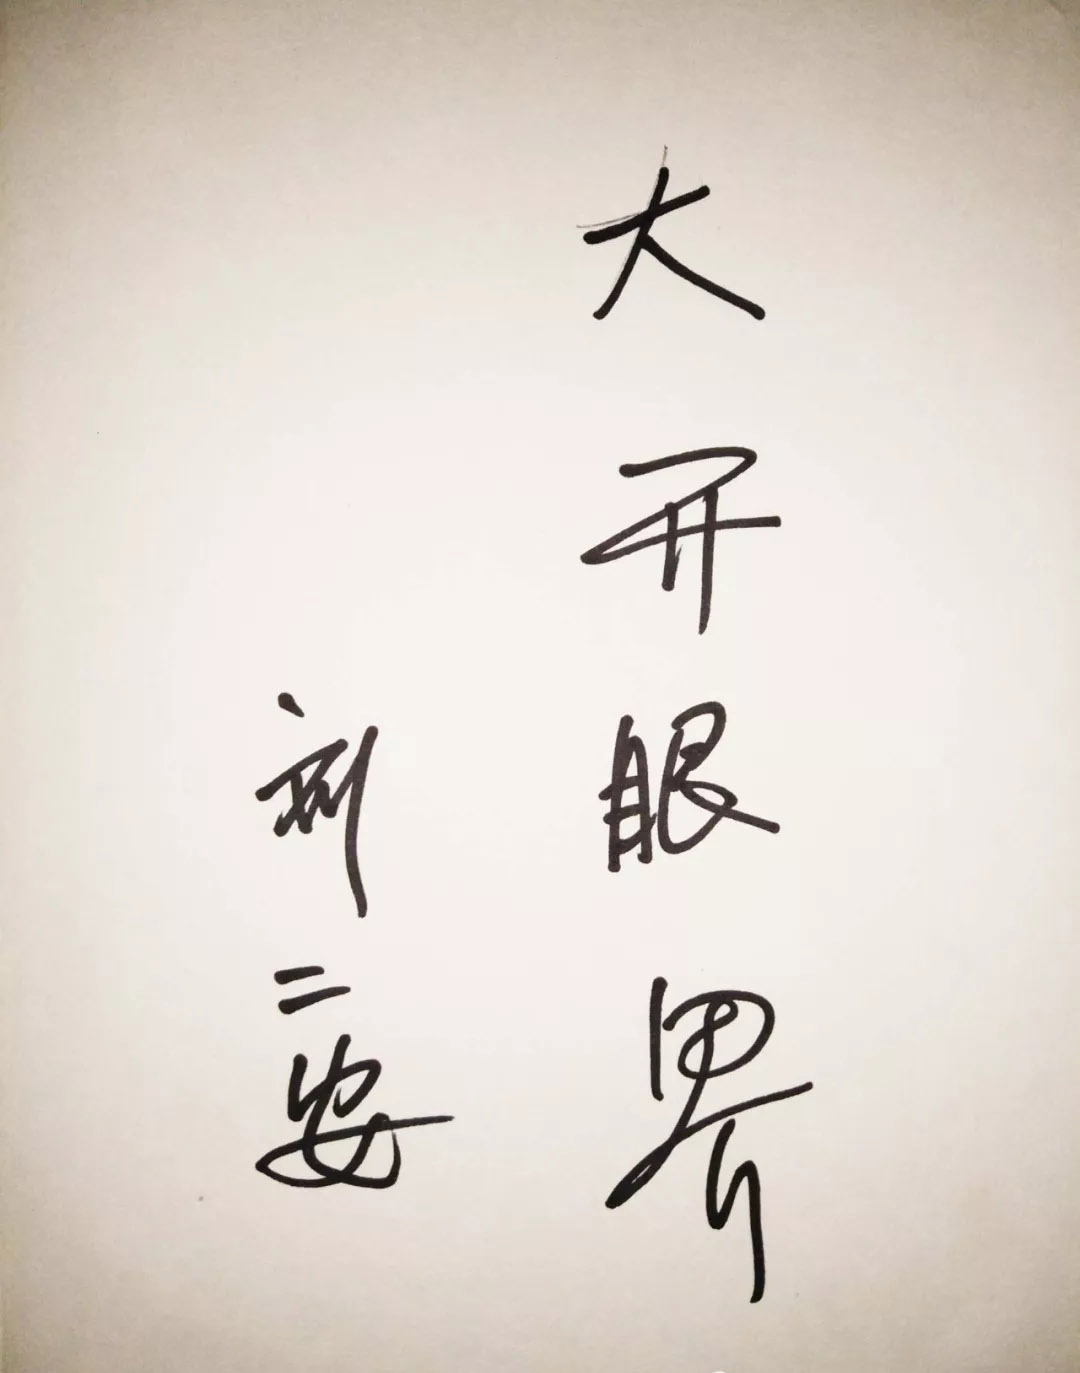 大开眼界
刘二安